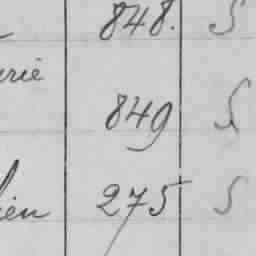 848. S
rie
849 S
ien 275 S